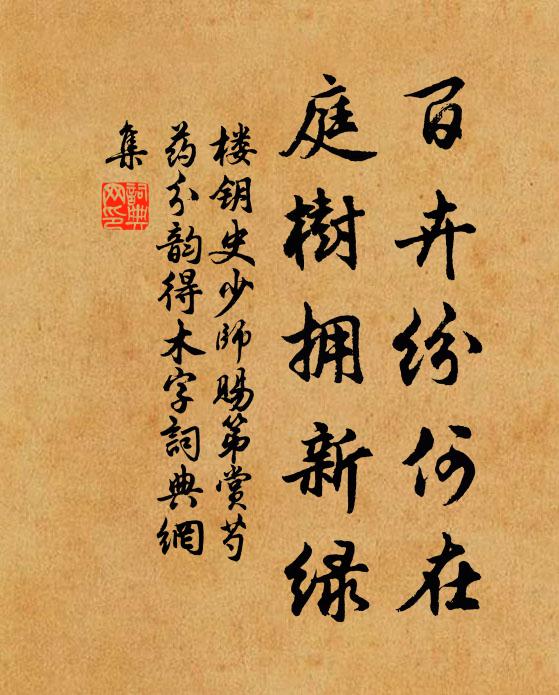 百卉纷何在
庭樹拥新绿
楼钥史少师賜第赏芍
药分韵得木字詞典網
集
詞典
网印